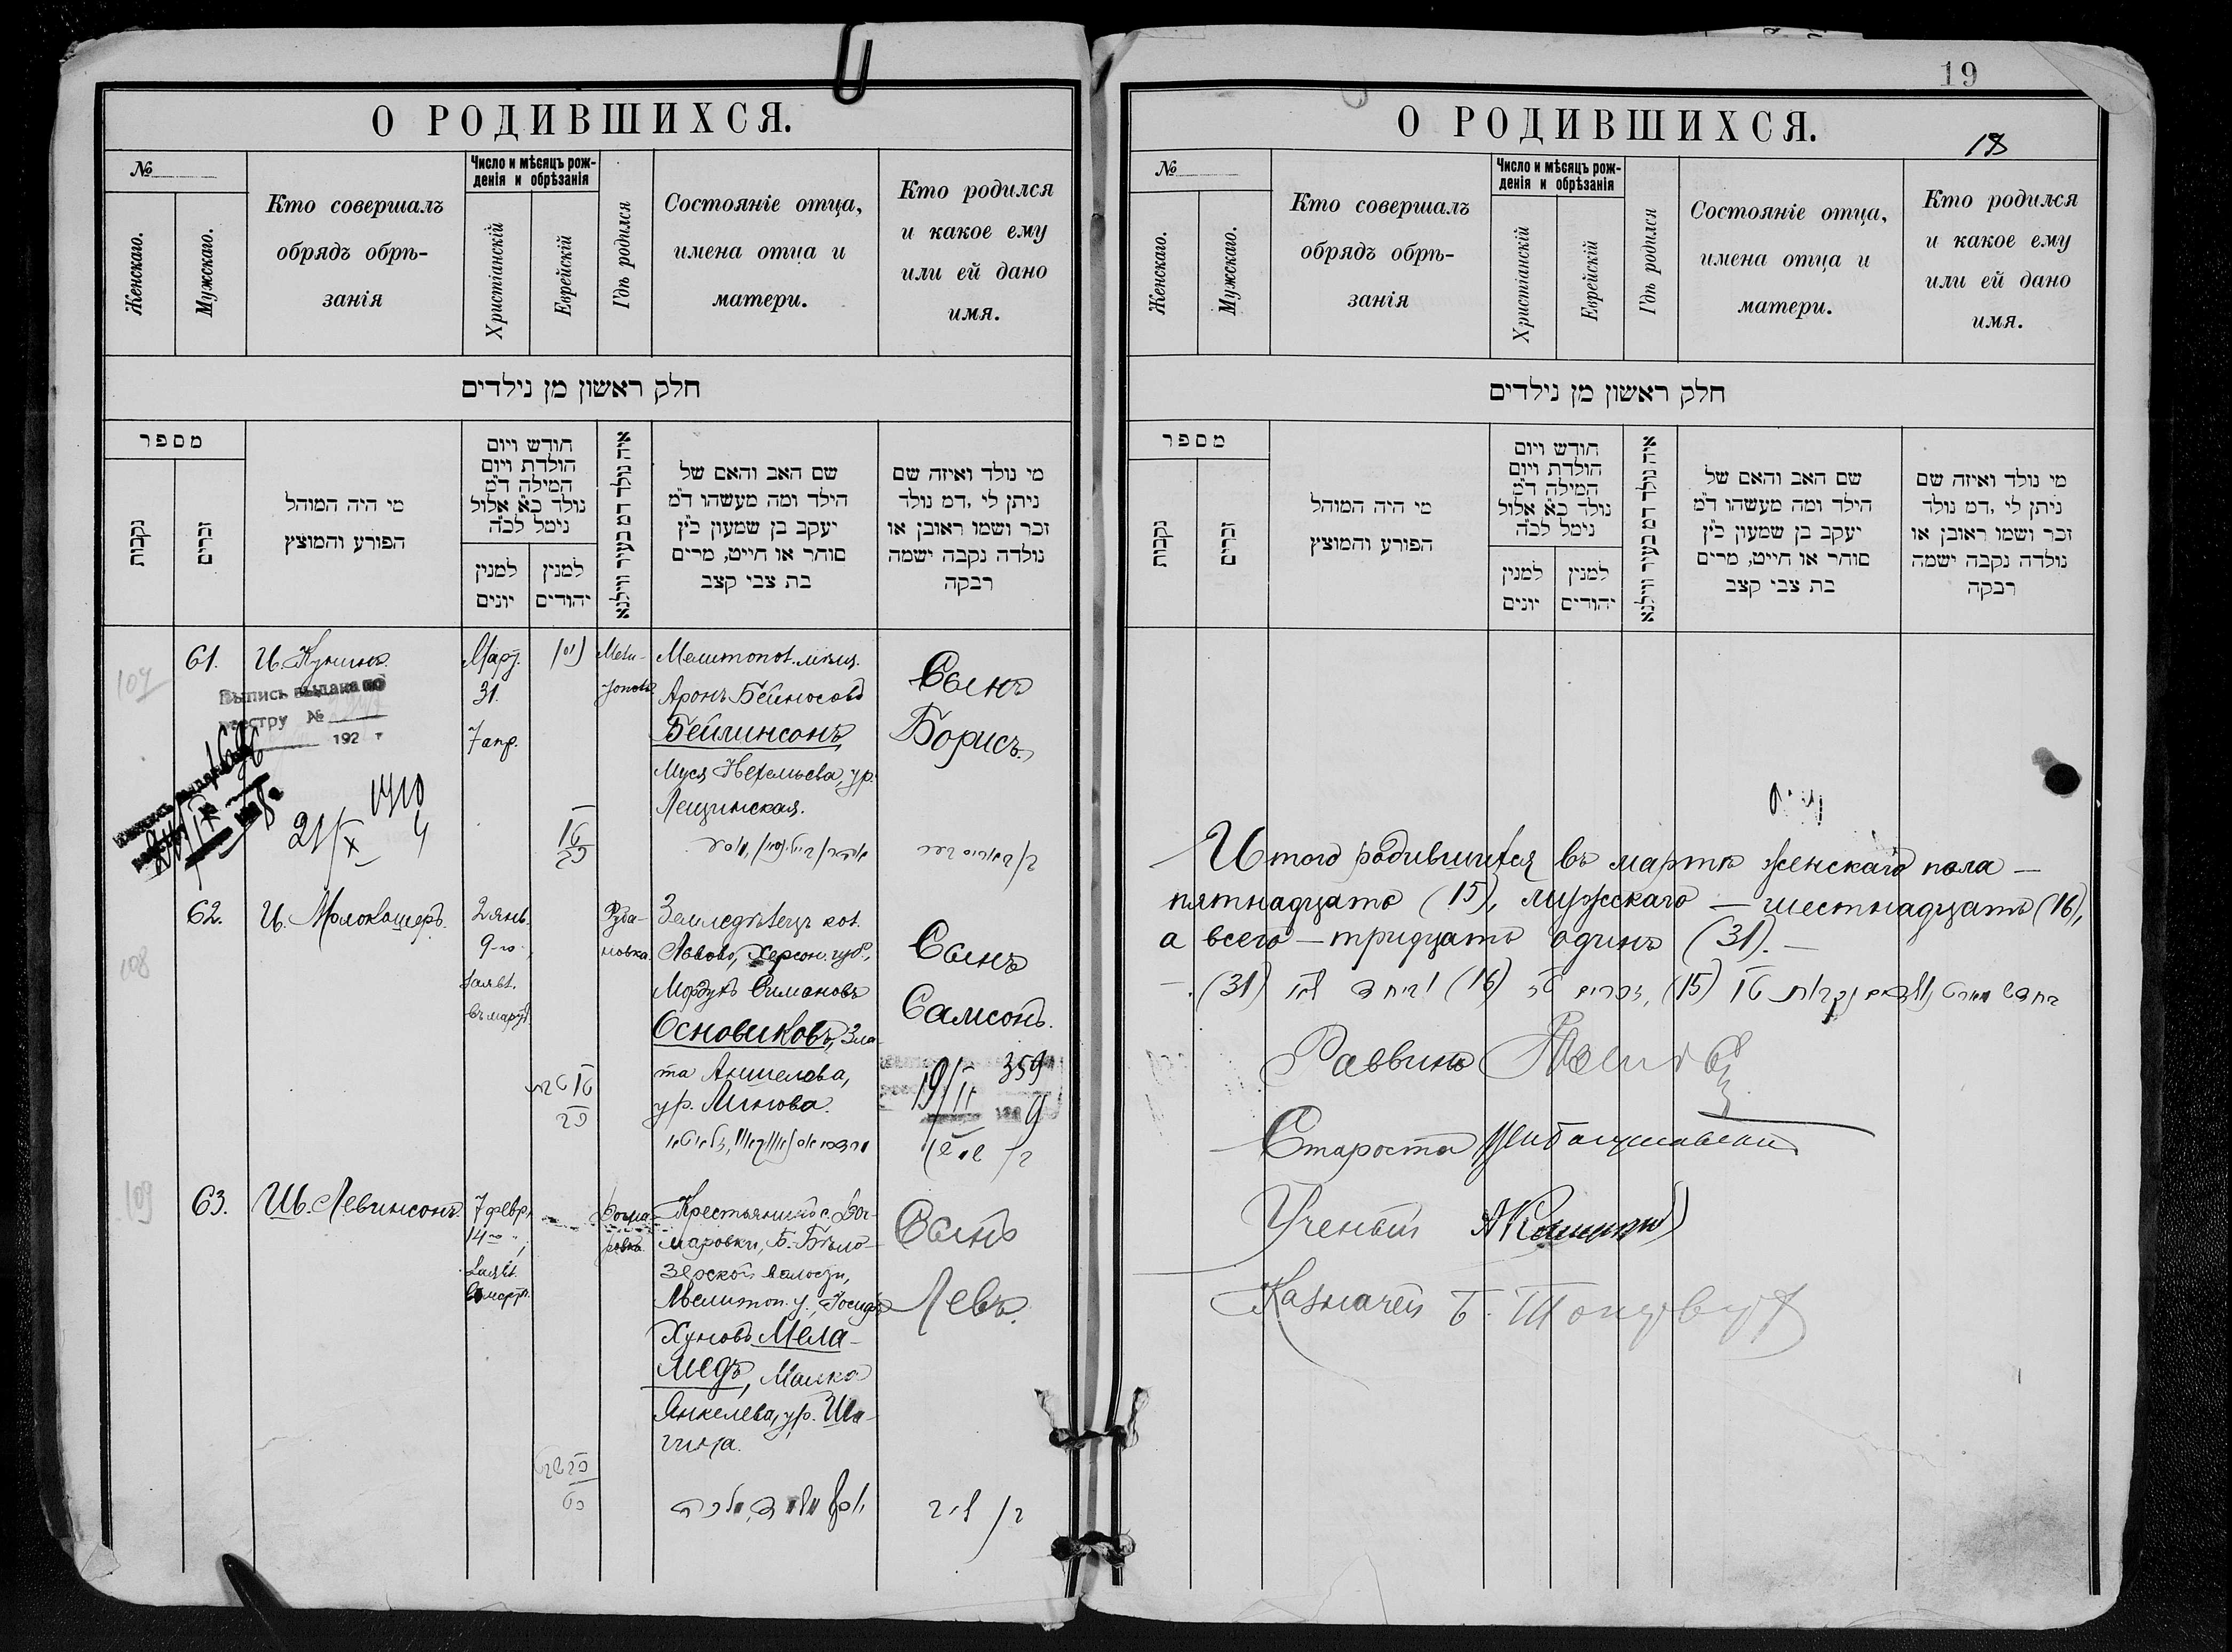 О РОДИВШИХСЯ.
№
Женскаго.
Мужскаго.
Кто совершалъ
обрядъ обрѣ-
занія
Число и мѣсяцъ рож-
денія и обрѣзанія
Христіанскій
Еврейскій
Гдѣ родился
Состояніе отца,
имена отца и
матери.
Кто родился
и какое ему
или ей дано
имя.
חלק ראשון מן נילדים
מספר
נקבות
זכרים
מי היה המוהל
הפורע והמוצץ
חודש ויום
הולדת ויום
המילה ד״מ
נולד כ״א אלול
נימל לכ״ה
למנין
יונים
למנין
יהודים
איה נולד דמ בעיר ווילנא
שם האב והאם של
הילד ומה מעשהו ד״מ
יעקב בן שמעון כ״ץ
סוחר או חייט, מרים
בת צבי קצב
מי נולד ואיזה שם
ניתן לי, דמ נולד
זכר ושמו ראובן או
נולדה נקבה ישמה
רבקה
107
61.
И. Кунинъ.
Март.
31.
7 апр.
ניסן
Мели-
тополь
Мелитопол. мѣщ.
Аронъ Бейносовъ
Бейлинсонъ,
Муся Нехельева, ур.
Лещинская.
Сынъ
Борисъ.
Выпись выдана по
реестру №
192 г
21/X
108
62.
И. Молокошеръ.
2 янв.
9-го
заявл.
въ март.
Руба-
новка.
Земледѣлецъ кол.
Львово, Херсон. губ.,
Мордухъ Симановъ
Основиковъ, Зла-
та Аншелова,
ур. Минова.
Сынъ
Самсонъ.
19/II 359
9
109
63.
Ш. Левинсонъ.
7 февр.
14-го
заявл.
въ март.
Крестьянинъ с. Вог-
маровки, Б.-Бѣло-
зерской волости,
Мелитоп. у., Іосифъ
Хуновъ Мела-
медъ, Малка
Янкелева, ур. Ша-
Сынъ
Левъ.
19
18
О РОДИВШИХСЯ.
№
Женскаго.
Мужскаго.
Кто совершалъ
обрядъ обрѣ-
занія
Число и мѣсяцъ рож-
денія и обрѣзанія
Христіанскій
Еврейскій
Гдѣ родился
Состояніе отца,
имена отца и
матери.
Кто родился
и какое ему
или ей дано
имя.
חלק ראשון מן נילדים
מספר
נקבות
זכרים
מי היה המוהל
הפורע והמוצץ
חודש ויום
הולדת ויום
המילה ד״מ
נולד כ״א אלול
נימל לכ״ה
למנין
יונים
למנין
יהודים
איה נולד דמ בעיר ווילנא
שם האב והאם של
הילד ומה מעשהו ד״מ
יעקב בן שמעון כ״ץ
סוחר או חייט, מרים
בת צבי קצב
מי נולד ואיזה שם
ניתן לי, דמ נולד
זכר ושמו ראובן או
נולדה נקבה ישמה
רבקה
Итого родившихся въ мартѣ женскаго пола —
пятнадцать (15), мужскаго — шестнадцать (16),
а всего — тридцать одинъ (31). —
נקבות (15), זכרים (16) וביחד (31)
Раввинъ
Староста
Ученый
Казначей Б.